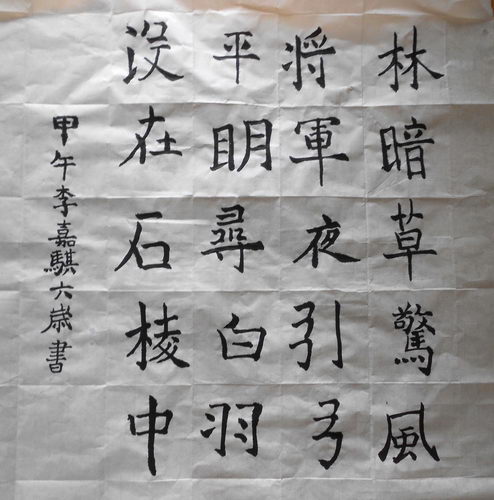 林暗草驚風
將軍夜引弓
平明尋白羽
没在石棱中
甲午李嘉騏六歲書